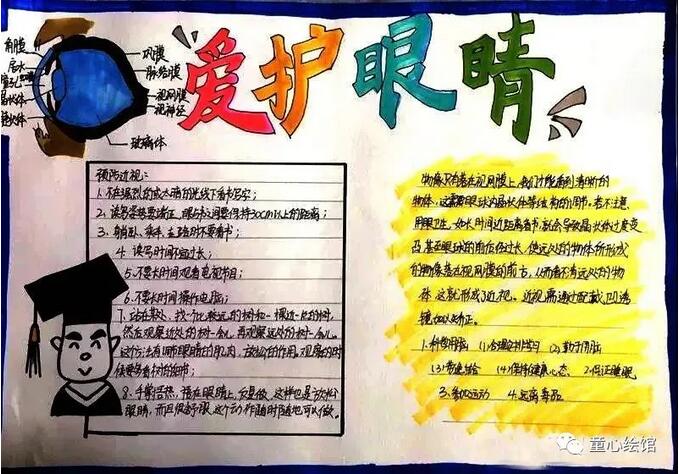 爱护眼睛
角膜
房水
瞳孔
晶状体
睫状体
巩膜
脉络膜
视网膜
视神经
玻璃体
预防近视:
1、不在强烈的或太暗的光线下看书写字;
2、读写姿势要端正,眼与书之间要保持30cm以上的距离;
3、躺卧、乘车、走路时不要看书;
4、读写时间不宜过长;
5、不要长时间观看电视节目;
6、不要长时间操作电脑;
7、站在某处、找一个比较远的树和一棵近一点的树,
然后观察近处的树一会儿,再观察远处的树一会儿。
这个方法有调节眼睛的肌肉,放松的作用。观察的时
候要看着树的细节;
8、手掌搓热,捂在眼睛上,反复做,这样也是放松
眼睛,而且很舒服,这个动作随时随地可以做。
物像只有落在视网膜上,我们才能看到清晰的
物体,这需要眼球内晶状体等结构的调节。若不注意
用眼卫生,如长时间近距离看书就会导致晶状体过度变
凸甚至眼球的前后径过长,使远处的物体所形成
的物像落在视网膜的前方,从而看不清远处的物
体,这就形成了近视。近视需通过配戴凹透
镜加以矫正。
1.科学用脑 (1)合理安排学习 (2)勤于用脑
(3)营养 (4)保持健康心态 2.保证睡眠
3.参加运动 4.远离毒品
童心绘馆